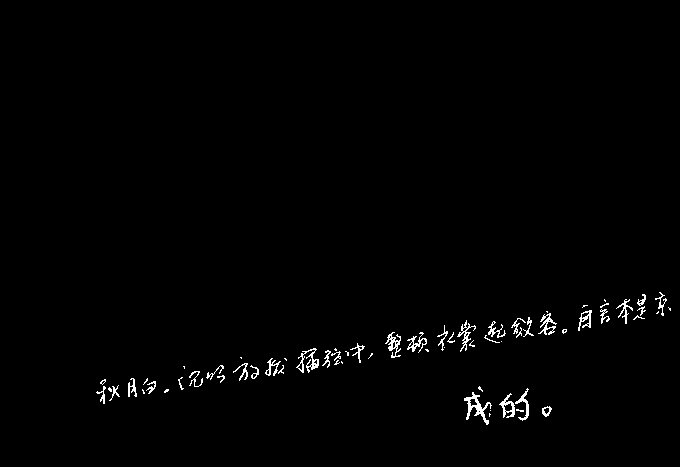 秋月白。沉吟放拨插弦中,整顿衣裳起敛容。自言本是京
成的。